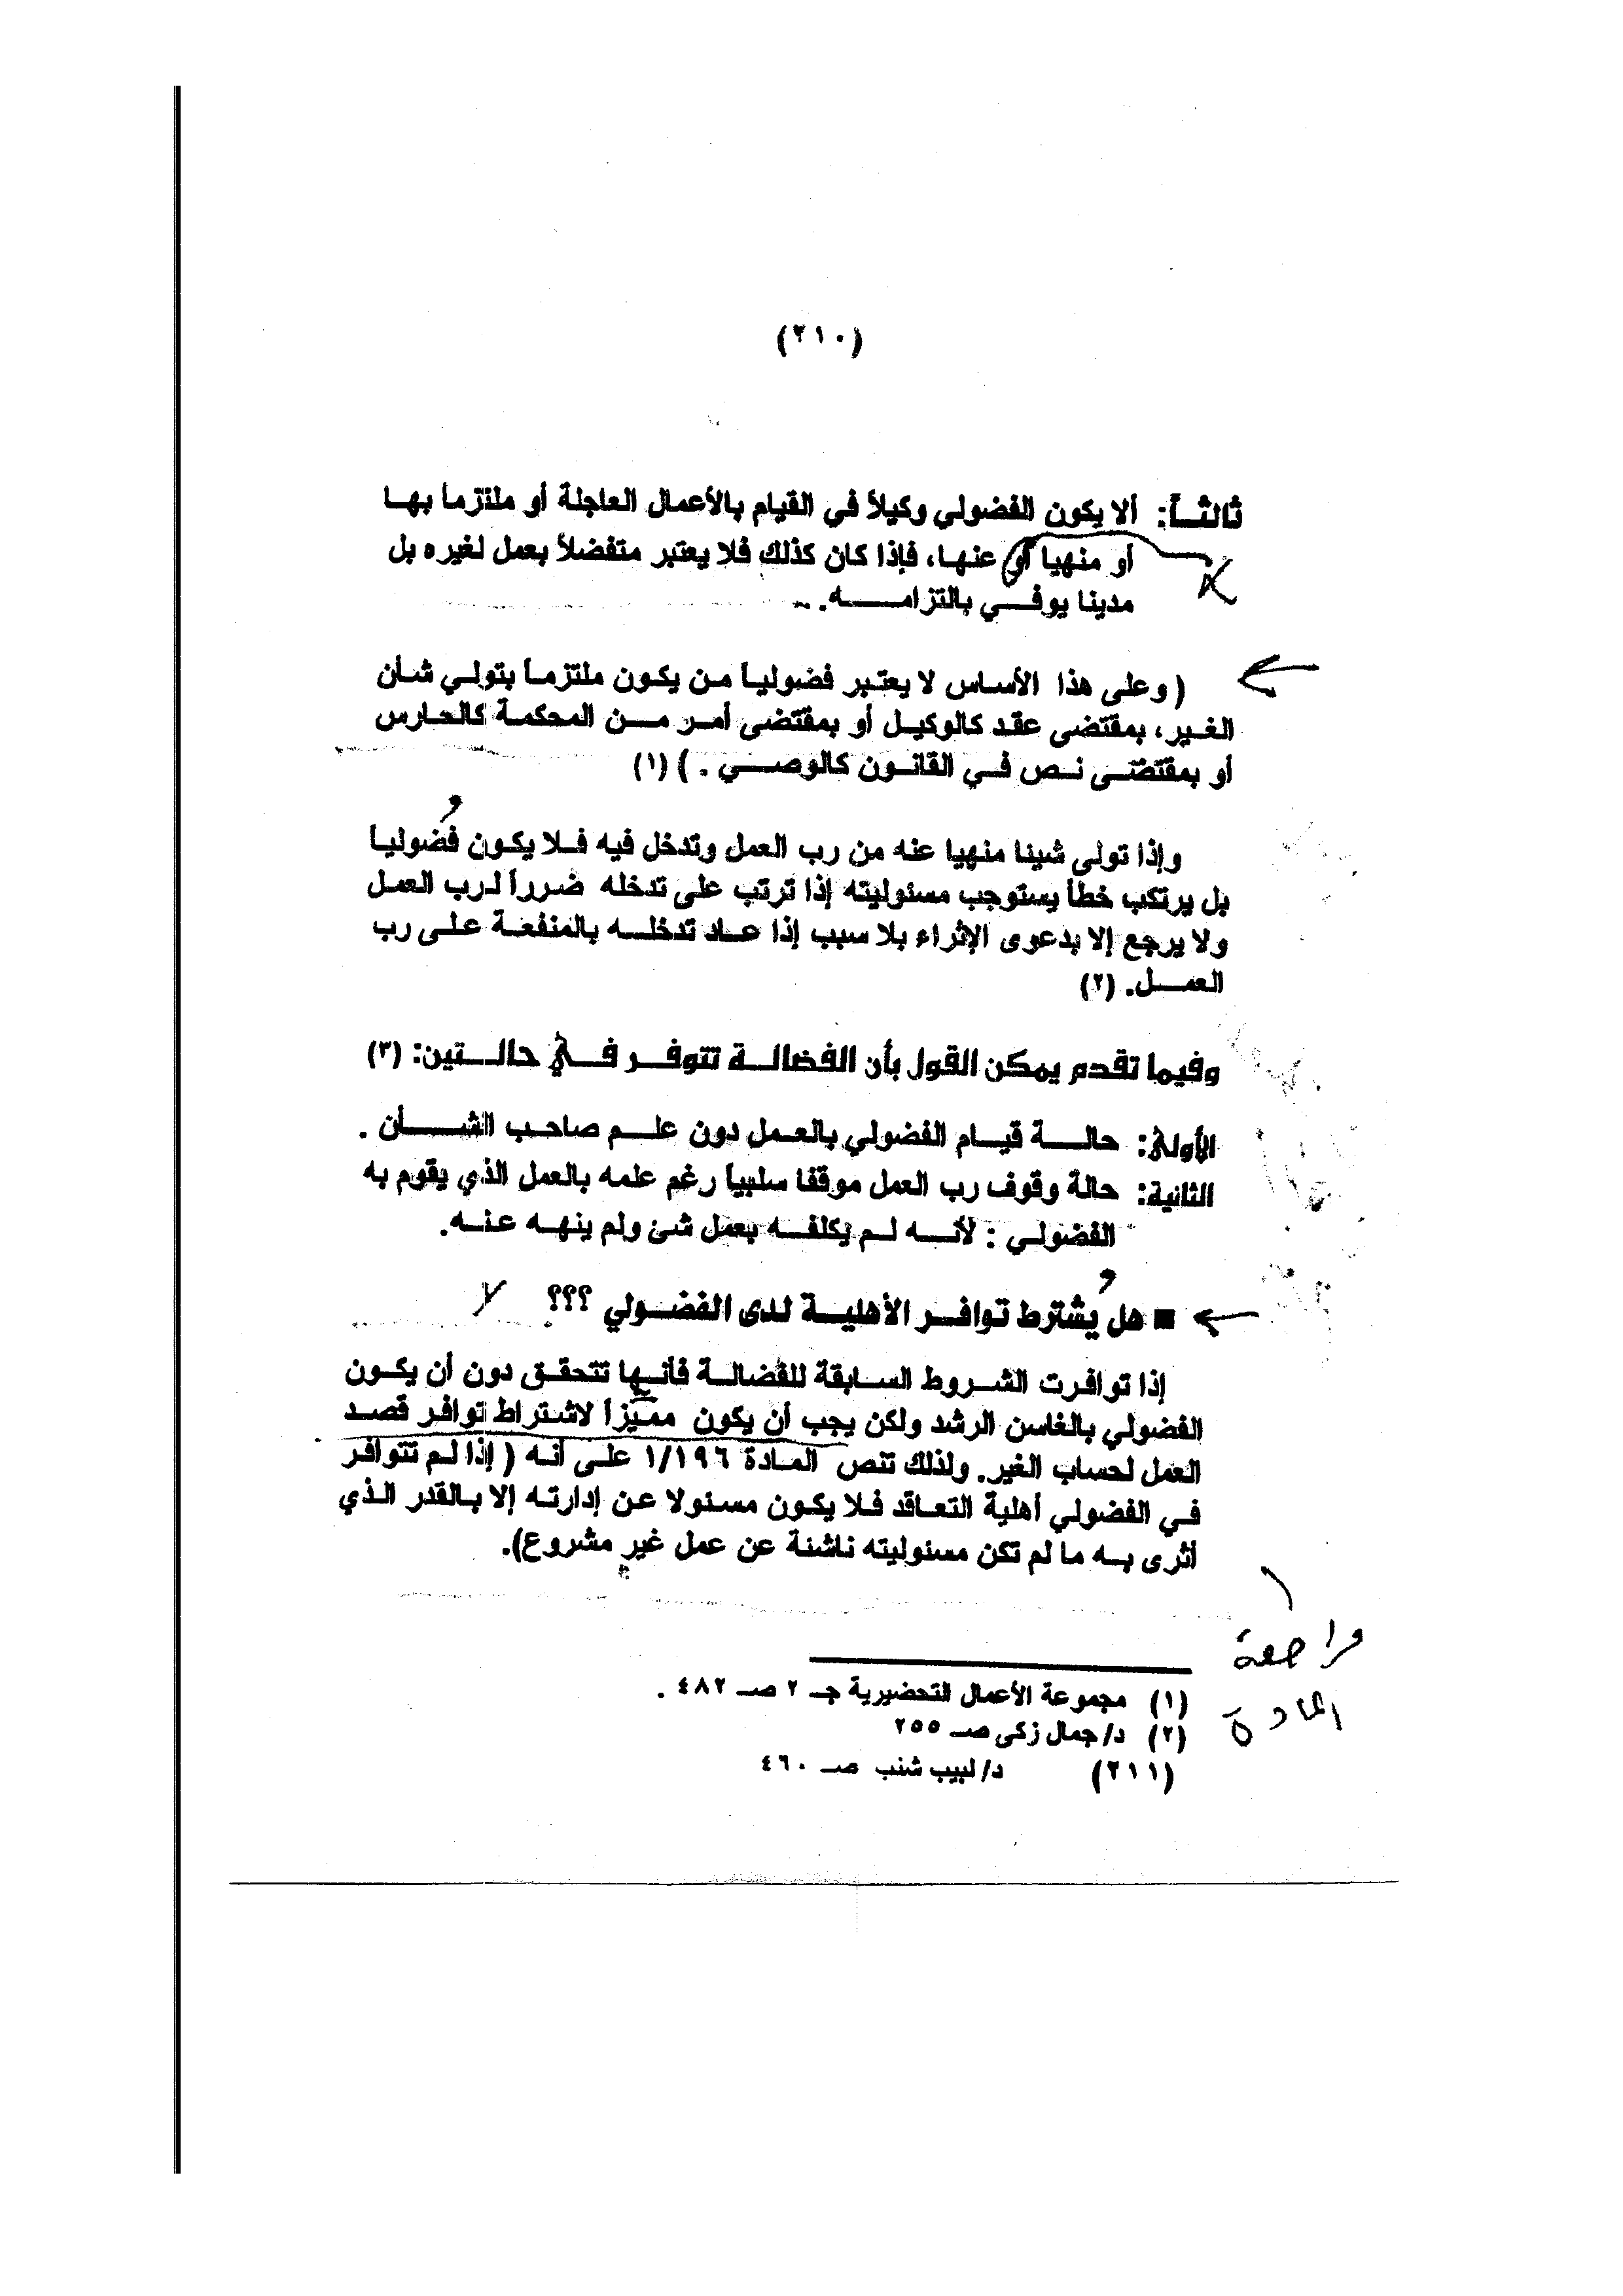 (٢١٠)
ثالثـــاً: ألا يكون الفضولي وكيلاً في القيام بالأعمال العاجلة أو ملتزماً بهـا
أو منهيا أو عنهـا، فإذا كان كذلك فلا يعتبر متفضلاً بعمل لغيره بل
مدينا يوفـــي بالتزامـــــه.
( وعلى هذا الأساس لا يعتبر فضولياً من يكون ملتزماً بتولي شأن
الغير، بمقتضى عقد كالوكيل أو بمقتضى أمر من المحكمة كالحارس
أو بمقتضى نص في القانون كالوصـــي . ) (١)
وإذا تولى شيئا منهيا عنه من رب العمل وتدخل فيه فلا يكون فُضوليا
بل يرتكب خطأ يستوجب مسئوليته إذا ترتب على تدخله ضرراً لرب العمل
ولا يرجع إلا بدعوى الإثراء بلا سبب إذا عاد تدخله بالمنفعة على رب
العمـــل. (٢)
وفيما تقدم يمكن القول بأن الفضالــة تتوفــر فــي حالــتين: (٣)
الأولى: حالـــة قيــام الفضولي بالعمل دون علــم صاحب الشـــــأن .
الثانية: حالة وقوف رب العمل موقفا سلبياً رغم علمه بالعمل الذي يقوم به
الفضولي : لأنــه لــم يكلفــه بعمل شئ ولم ينهــه عنــه.
■ هل يُشترط توافــر الأهليــة لدى الفضــولي ؟؟؟ لا
إذا توافرت الشروط السابقة للفضالــة فأنــها تتحقق دون أن يكون
الفضولي بالغاسن الرشد ولكن يجب أن يكون مميّزاً لاشتراط توافر قصد
العمل لحساب الغير. ولذلك تنص المادة ١/١٩٦ على أنه ( إذا لم تتوافر
في الفضولي أهلية التعاقد فلا يكون مسئولا عن إدارته إلا بالقدر الذي
أثرى به ما لم تكن مسئوليته ناشئة عن عمل غير مشروع).
مراجعة
المادة
(١) مجموعة الأعمال التحضيرية جـ ٢ صـ ٤٨٢ .
(٢) د/ جمال زكى صـ ٢٥٥
(٢١١) د/ لبيب شنب صـ ٤٦٠